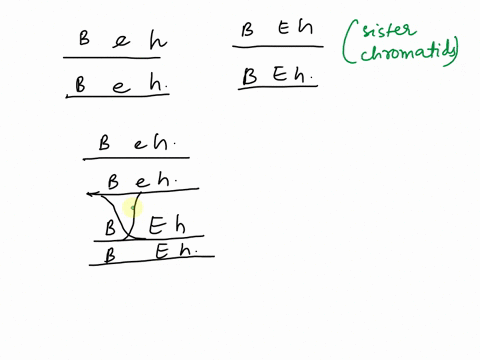 B e h
B e h.
B E h
B E h.
(sister chromatids)
B e h.
B e h.
B E h
B E h.